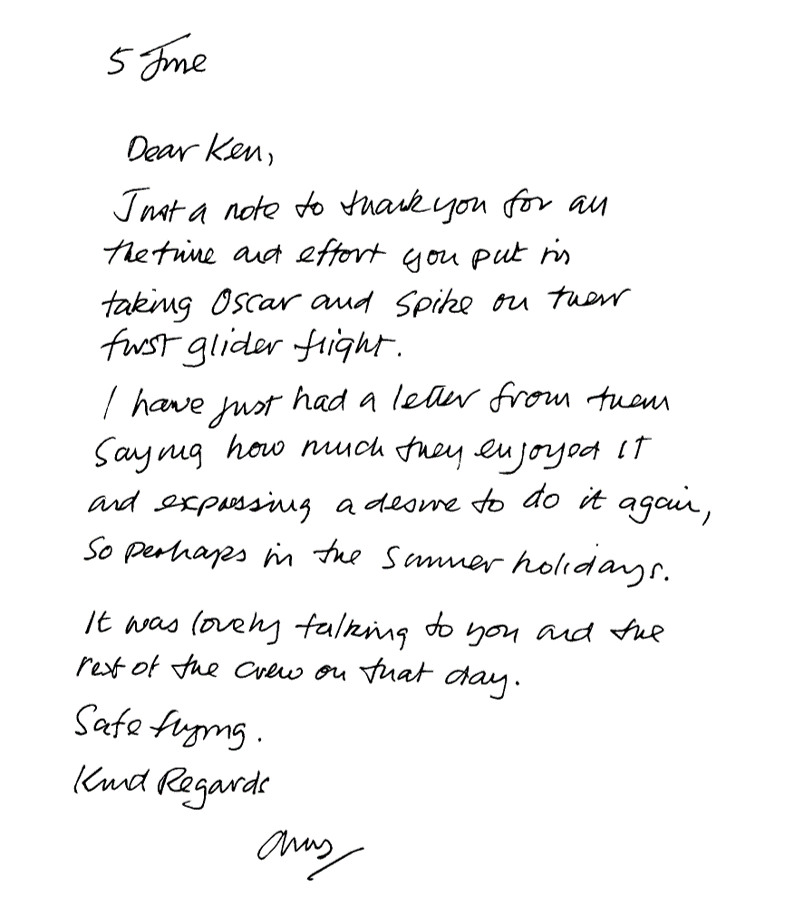 5 June
Dear Ken,
Just a note to thank you for all
the time and effort you put in
taking Oscar and Spike on their
first glider flight.
I have just had a letter from them
Saying how much they enjoyed it
and expressing a desire to do it again,
So perhaps in the Summer holidays.
It was lovely talking to you and the
rest of the crew on that day.
Safe flying.
Kind Regards